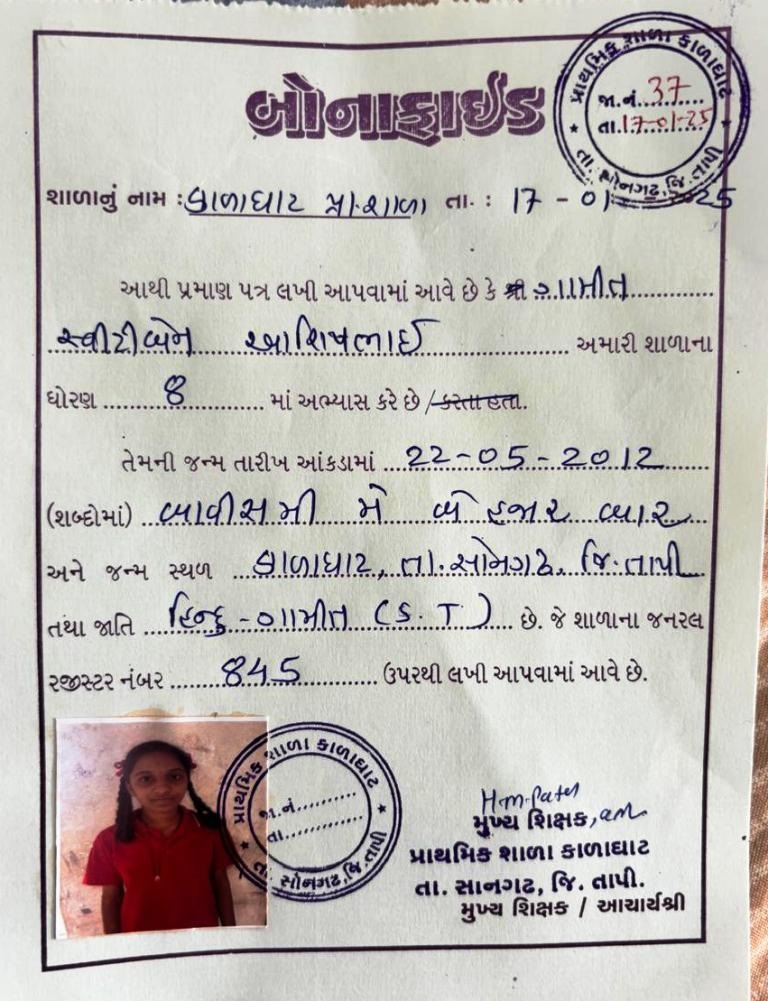 પ્રાથમિક શાળા કાળાઘાટ
જા.નં. 37
તા. 17-01-25
તા. સોનગઢ, જિ. તાપી
બોનાફાઈડ
શાળાનું નામ : કાળાઘાટ પ્રા.શાળા તા. : 17 - 01 - 2025
આથી પ્રમાણ પત્ર લખી આપવામાં આવે છે કે શ્રી ગામીત
સ્વીટીબેન આશિષભાઈ અમારી શાળાના
ધોરણ 8 માં અભ્યાસ કરે છે / કરતા હતા.
તેમની જન્મ તારીખ આંકડામાં 22-05-2012
(શબ્દોમાં) બાવીસમી મે બે હજાર બાર
અને જન્મ સ્થળ કાળાઘાટ, તા.સોનગઢ, જિ.તાપી
તથા જાતિ હિન્દુ - ગામીત (S.T) છે. જે શાળાના જનરલ
રજીસ્ટર નંબર 845 ઉપરથી લખી આપવામાં આવે છે.
પ્રાથમિક શાળા કાળાઘાટ
જા.નં.
તા.
તા. સોનગઢ, જિ. તાપી
H.m.Patel
મુખ્ય શિક્ષક,
પ્રાથમિક શાળા કાળાઘાટ
તા. સાનગઢ, જિ. તાપી.
મુખ્ય શિક્ષક / આચાર્યશ્રી